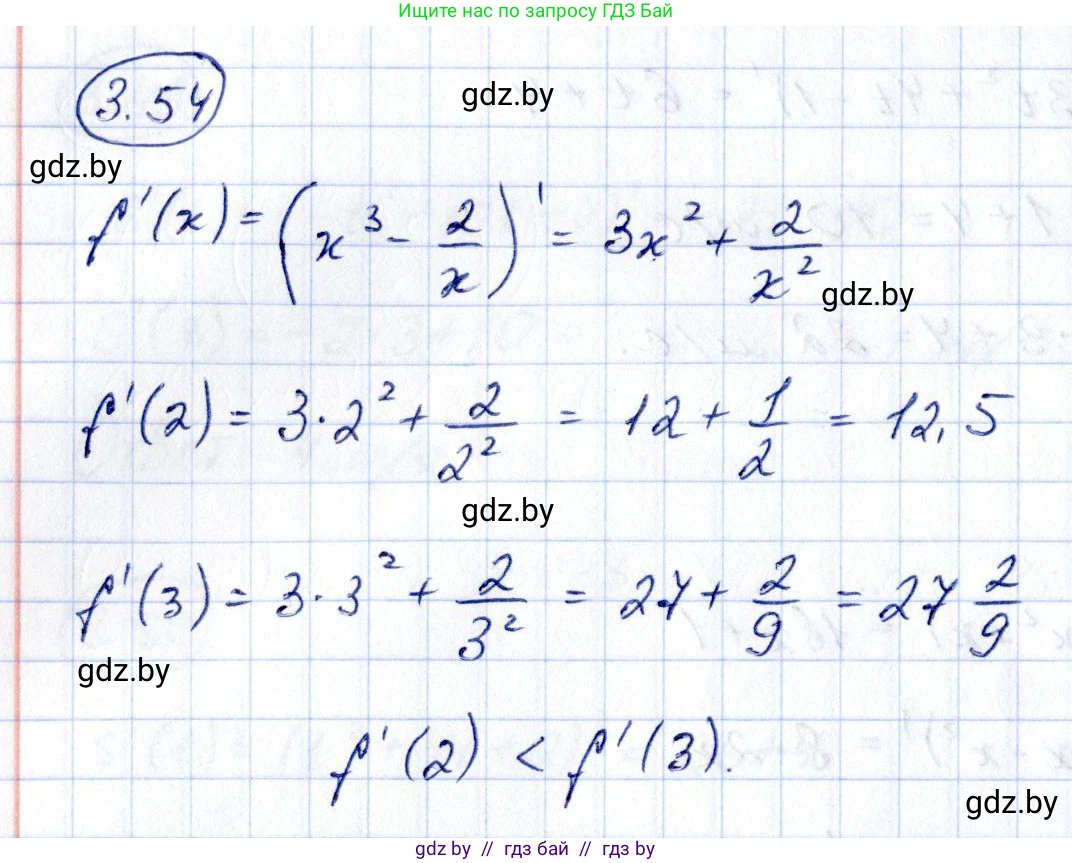 Ищите нас по запросу ГДЗ Бай
3.54
gdz.by
gdz.by
f'(x) = (x³ - 2/x)' = 3x² + 2/x²
gdz.by
f'(2) = 3·2² + 2/2² = 12 + 1/2 = 12,5
gdz.by
f'(3) = 3·3² + 2/3² = 27 + 2/9 = 27 2/9
gdz.by
f'(2) < f'(3).
gdz.by
gdz.by // гдз бай // гдз by